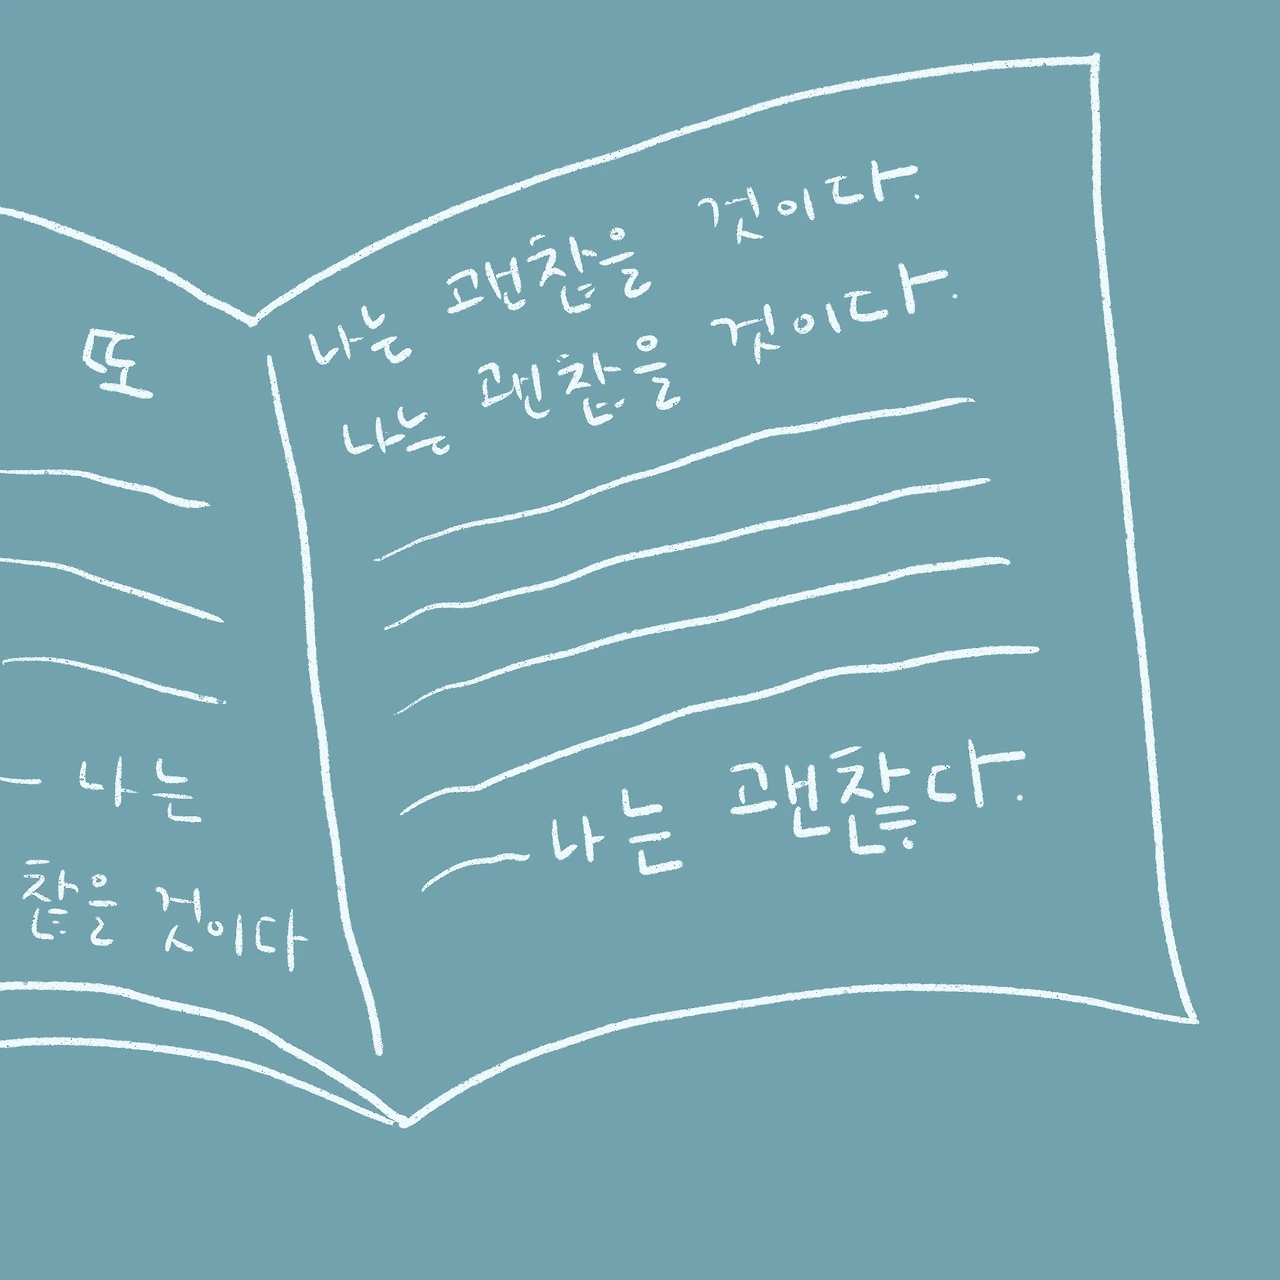 또
나는
찮을 것이다
나는 괜찮을 것이다.
나는 괜찮을 것이다.
나는 괜찮다.